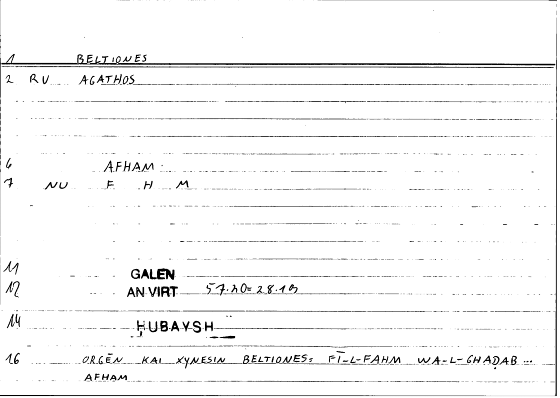 1 BELTIONES
2 RU AGATHOS
6 AFHAM
7 NU F H M
11 GALEN
12 AN VIRT 57.20=28.19
14 ḤUBAYSH
16 ORGĒN KAI XYNESIN BELTIONES: FĪ-L-FAHM WA-L-GHAḌAB ...
AFHAM